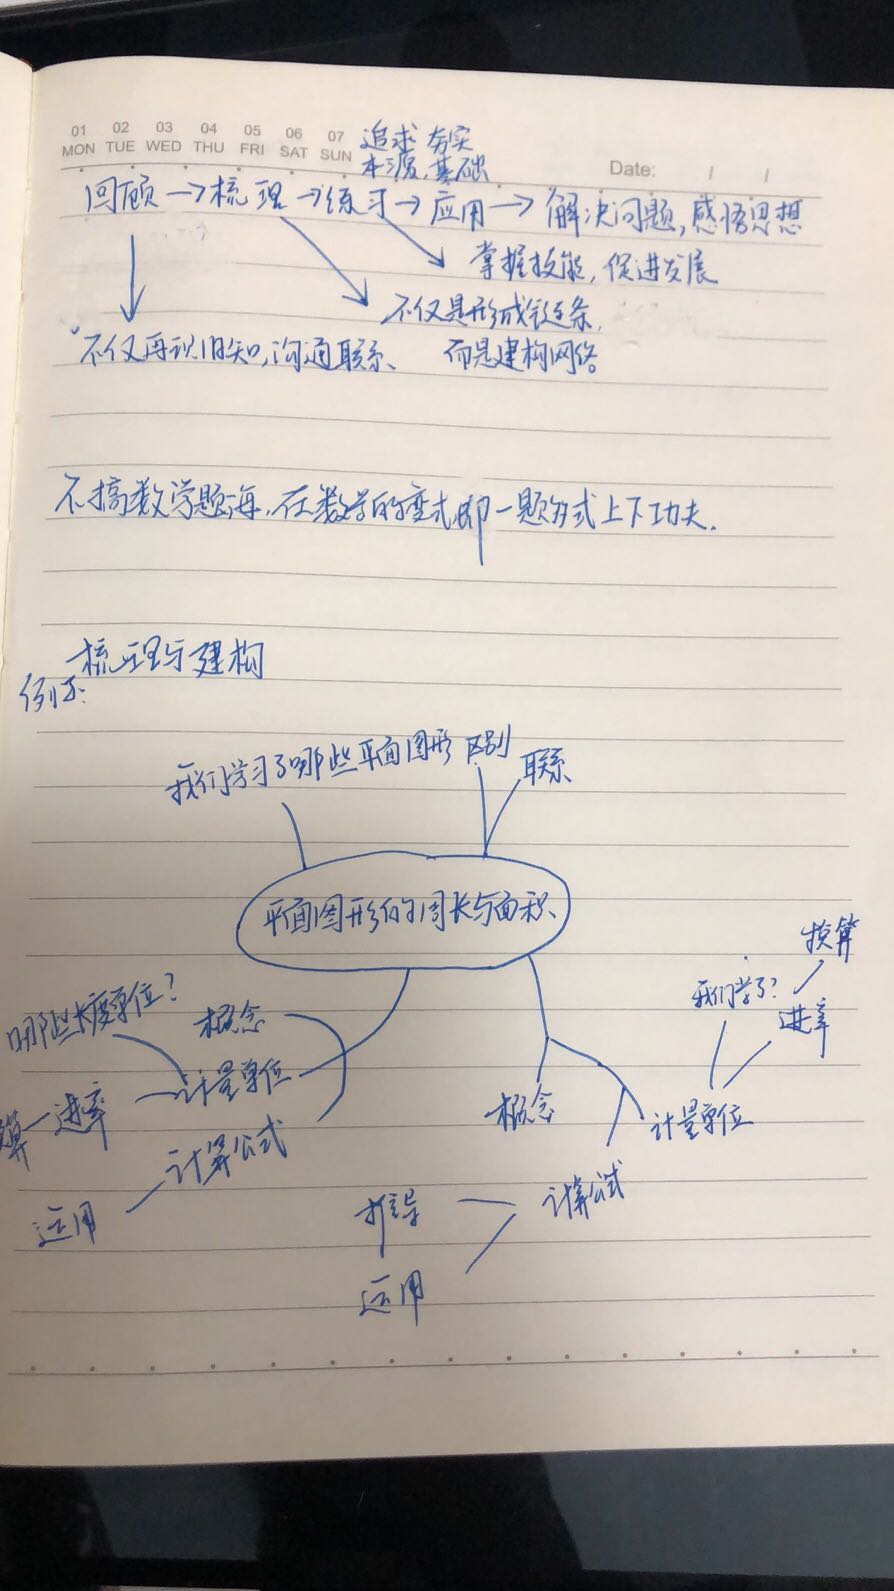 01 02 03 04 05 06 07
MON TUE WED THU FRI SAT SUN
追求 夯实
本源,基础
Date: / /
回顾→梳理→练习→应用→解决问题,感悟思想
掌握技能,促进发展
不仅是形成链条,
不仅再现旧知,沟通联系、 而是建构网络
不搞数学题海,在数学的变式,即一题多式上下功夫.
梳理与建构
例子:
我们学习了哪些平面图形 区别
联系
平面图形的周长与面积
换算
我们学了?
进率
哪些长度单位?
概念
计量单位
算—进率
概念
计量单位
计算公式
计算公式
推导
运用
运用